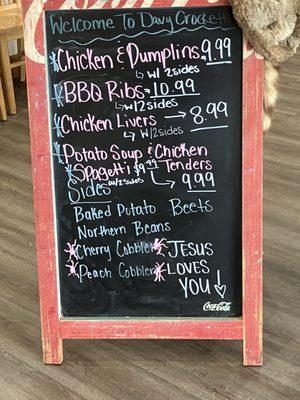 Welcome To Davy Crockett
Chicken & Dumplins 9.99
w/ 2 sides
BBQ Ribs 10.99
w/ 2 sides
Chicken Livers → 8.99
w/ 2 sides
Potato Soup & Chicken
Tenders
Spagetti $9.99 w/ 2 sides → 9.99
Sides
Baked Potato Beets
Northern Beans
Cherry Cobbler
Peach Cobbler
JESUS
LOVES
YOU
Coca-Cola